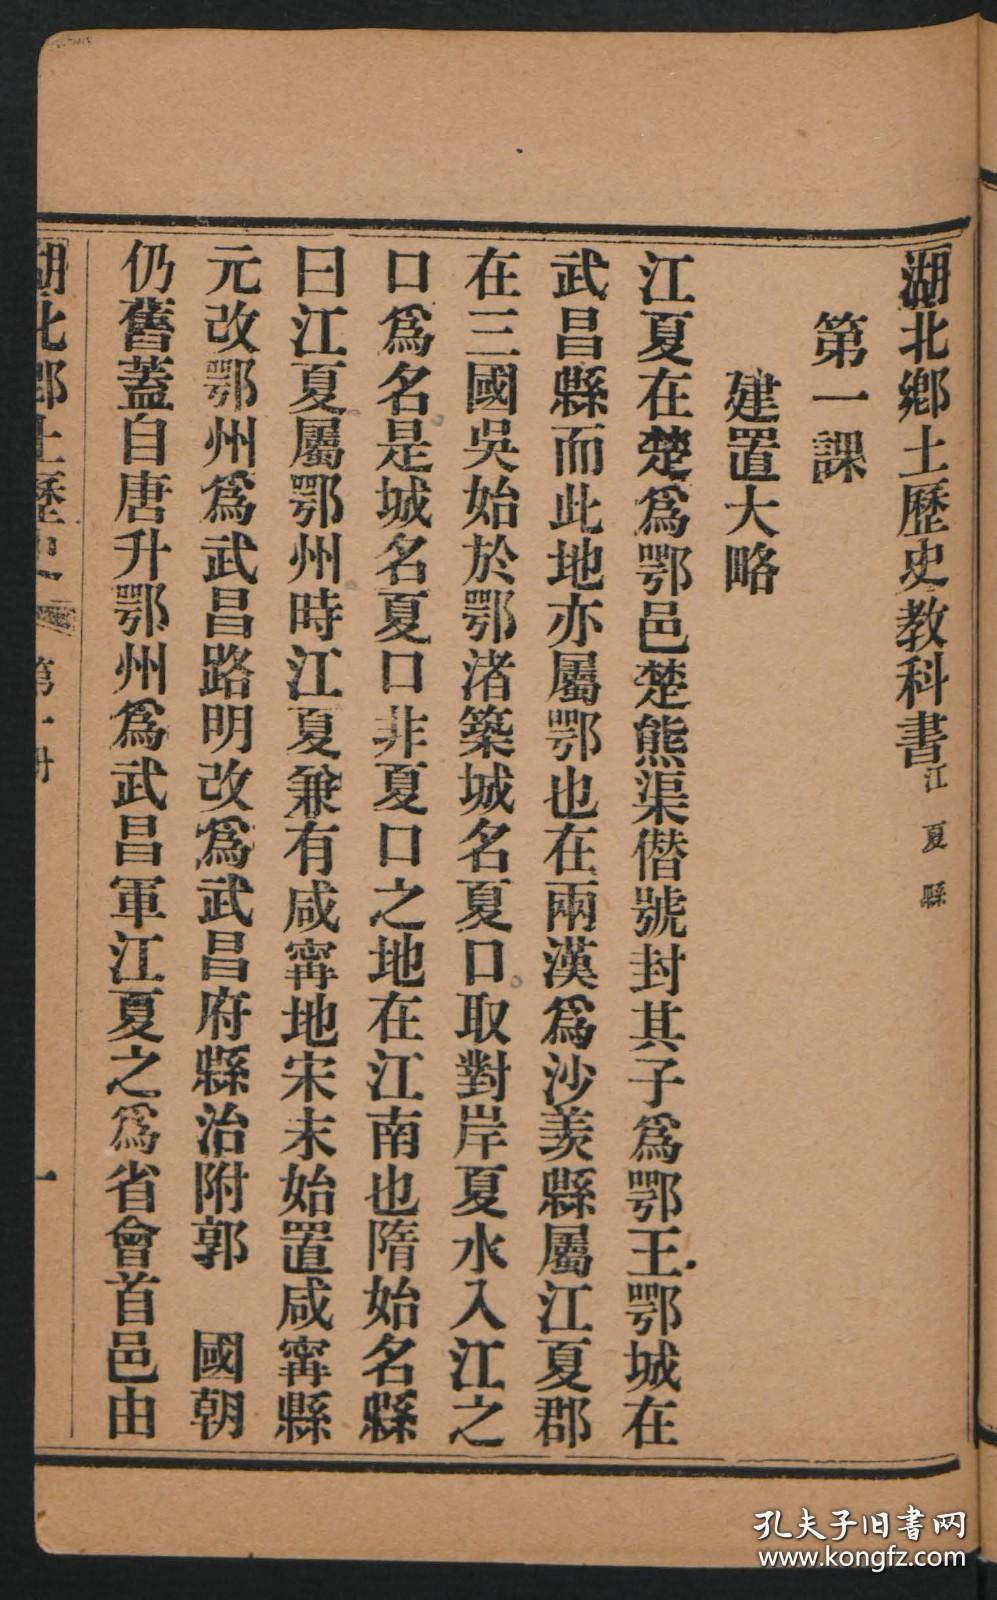 湖北鄉土歷史教科書江夏縣
第一課
建置大略
江夏在楚爲鄂邑楚熊渠僭號封其子爲鄂王鄂城在
武昌縣而此地亦屬鄂也在兩漢爲沙羨縣屬江夏郡
在三國吳始於鄂渚築城名夏口取對岸夏水入江之
口爲名是城名夏口非夏口之地在江南也隋始名縣
曰江夏屬鄂州時江夏兼有咸甯地宋末始置咸甯縣
元改鄂州爲武昌路明改爲武昌府縣治附郭　國朝
仍舊蓋自唐升鄂州爲武昌軍江夏之爲省會首邑由
湖北鄉土歷史　第一册　一
孔夫子旧书网
www.kongfz.com